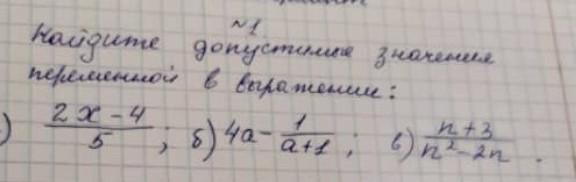 №1
Найдите допустимые значения
переменной в выражении:
) (2x-4)/5; б) 4a - 1/(a+1); в) (n+3)/(n²-2n).